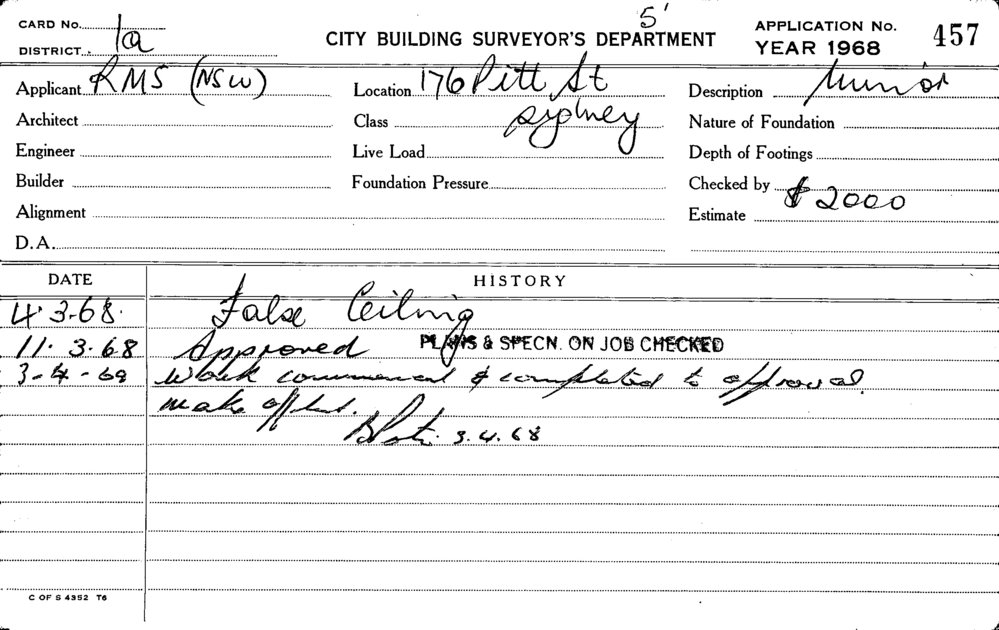 5'
CARD No. 1a
DISTRICT
CITY BUILDING SURVEYOR'S DEPARTMENT
APPLICATION No. 457
YEAR 1968
Applicant RMS (NSW)
Location 176 Pitt St
Description Minor
Architect
Class Sydney
Nature of Foundation
Engineer
Live Load
Depth of Footings
Builder
Foundation Pressure
Checked by
Alignment
Estimate $2000
D.A.
DATE HISTORY
4.3.68. False Ceiling
11.3.68 Approved PLANS & SPECN. ON JOB CHECKED
3-4-68 Work commenced & completed to approval.
make
3.4.68
C OF S 4352 T6